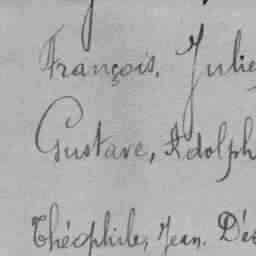 François, Julie
Gustave, Adolph
Théophile, Jean. Dés